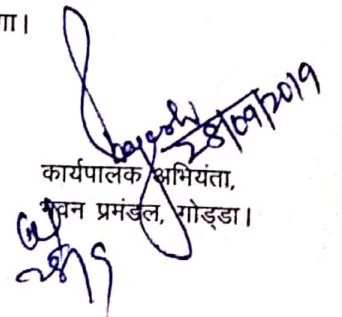 गा।
28/09/2019
कार्यपालक अभियंता,
भवन प्रमंडल, गोड्डा।
28/9